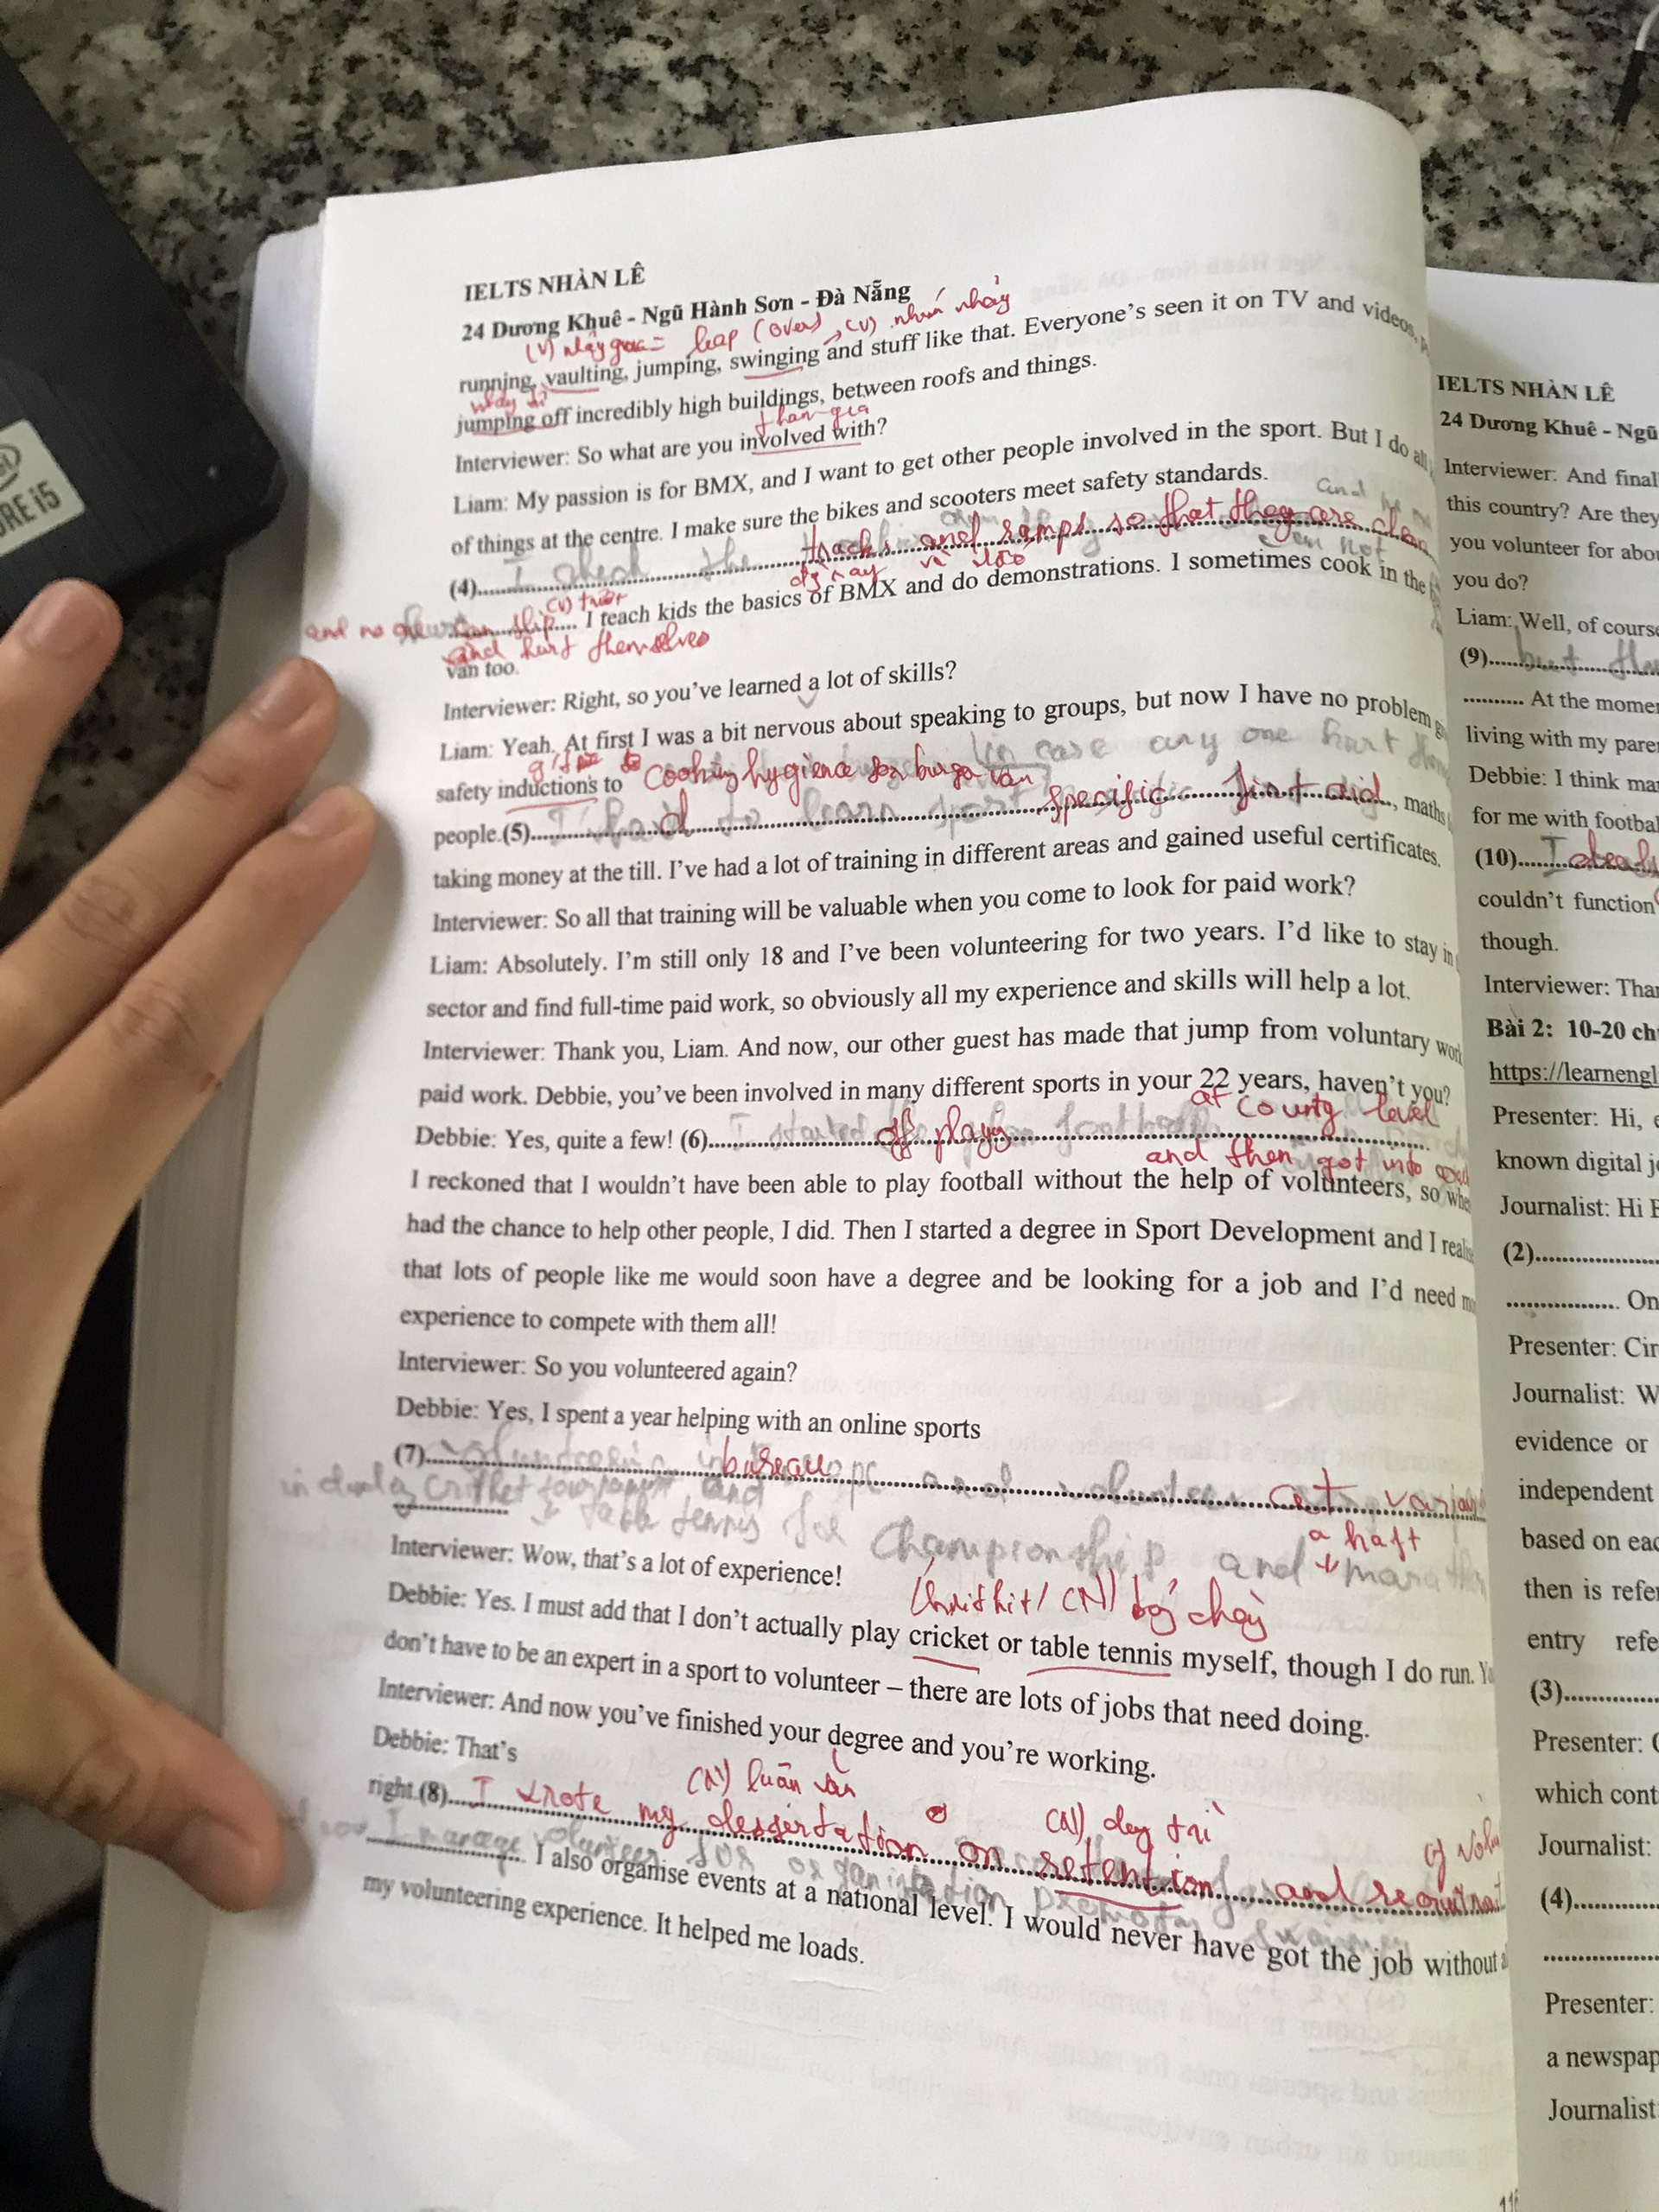 IELTS NHÀN LÊ
24 Dương Khuê - Ngũ Hành Sơn - Đà Nẵng
(v) nhảy qua = leap (over), (v) nhún nhảy
running, vaulting, jumping, swinging and stuff like that. Everyone's seen it on TV and videos,
jumping off incredibly high buildings, between roofs and things.
tham gia
Interviewer: So what are you involved with?
Liam: My passion is for BMX, and I want to get other people involved in the sport. But I do all
of things at the centre. I make sure the bikes and scooters meet safety standards.
(4) I check the tracks and ramps so that they are clean
and no one can slip I teach kids the basics of BMX and do demonstrations. I sometimes cook in the
and hurt themselves
van too.
Interviewer: Right, so you've learned a lot of skills?
Liam: Yeah. At first I was a bit nervous about speaking to groups, but now I have no problem
in case any one hurt
safety inductions to cooking hygiene for burger van
people.(5) I had to learn sport specific first aid, maths
taking money at the till. I've had a lot of training in different areas and gained useful certificates.
Interviewer: So all that training will be valuable when you come to look for paid work?
Liam: Absolutely. I'm still only 18 and I've been volunteering for two years. I'd like to stay in
sector and find full-time paid work, so obviously all my experience and skills will help a lot.
Interviewer: Thank you, Liam. And now, our other guest has made that jump from voluntary work
paid work. Debbie, you've been involved in many different sports in your 22 years, haven't you?
at county level
Debbie: Yes, quite a few! (6) I started off playing football
and then got into
I reckoned that I wouldn't have been able to play football without the help of volunteers, so when
had the chance to help other people, I did. Then I started a degree in Sport Development and I realis
that lots of people like me would soon have a degree and be looking for a job and I'd need
experience to compete with them all!
Interviewer: So you volunteered again?
Debbie: Yes, I spent a year helping with an online sports
(7) volunteering bureau and volunteer at various
cricket tournament and
table tennis championship and a haft marathon
Interviewer: Wow, that's a lot of experience!
(N) bọ chày
Debbie: Yes. I must add that I don't actually play cricket or table tennis myself, though I do run. Yo
don't have to be an expert in a sport to volunteer – there are lots of jobs that need doing.
Interviewer: And now you've finished your degree and you're working.
Debbie: That's
(N) luận văn
(N) duy trì
right.(8) I wrote my dessertation on retention and recruitment
now I manage volunteer for organisation promoting I also organise events at a national level. I would never have got the job without
my volunteering experience. It helped me loads.
IELTS NHÀN LÊ
24 Dương Khuê - Ngũ
Interviewer: And final
this country? Are they
you volunteer for abo
you do?
Liam: Well, of course
(9) but
At the mome
living with my pare
Debbie: I think ma
for me with footba
(10) I
couldn't function
though.
Interviewer: Tha
Bài 2: 10-20 ch
https://learnengl
Presenter: Hi, e
known digital j
Journalist: Hi
(2)
On
Presenter: Cir
Journalist: W
evidence or
independent
based on eac
then is refe
entry refe
(3)
Presenter:
which cont
Journalist:
(4)
Presenter:
a newspap
Journalist